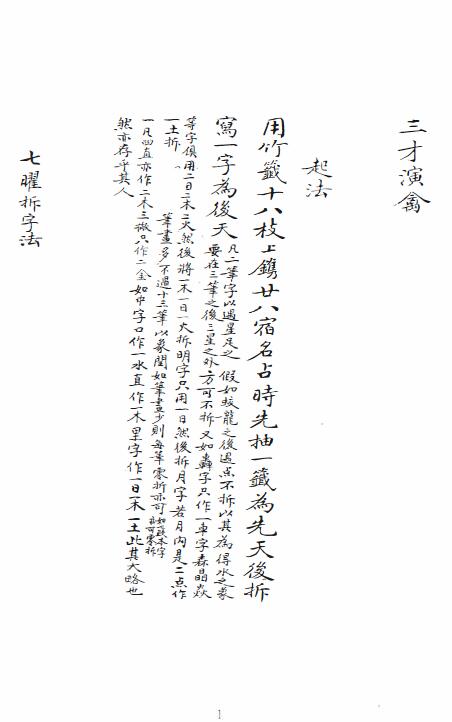 三才演禽
起法
用竹籤十八枝上鐫廿八宿名占時先抽一籤為先天後拆
寫一字為後天
凡二筆字以遇星足之 假如蛟龍之後遇点不拆以其為得水之象
要在三筆之後三星之外方可不拆又如轟字只作一車字森晶焱
等字俱用二日二木二火然後將一木一日一火拆明字只用一日然後拆月字若月內是二点作
一土拆
筆畫多不過十三筆以象閏如筆畫少則每筆零拆亦可如䇿本字
亦可零拆
一凡四直亦作二木三撇只作二金如中字口作一水直作一木里字作一日一木一土此其大略也
然亦存乎其人
七曜拆字法
1